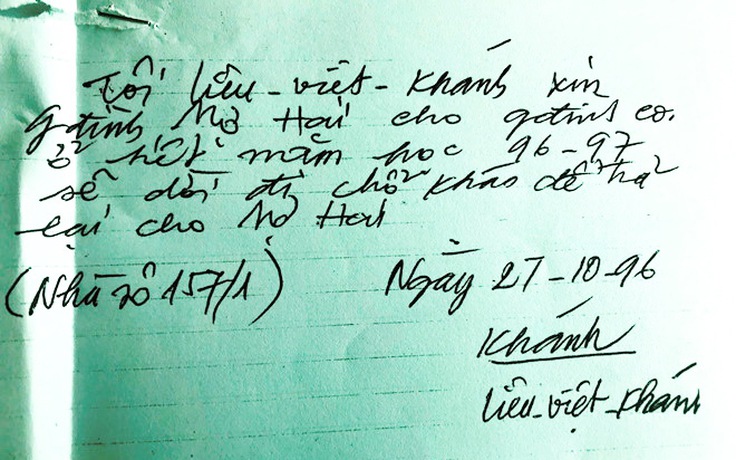 Tôi liễu-việt-Khánh xin
gđình Mợ Hai cho gđình co.
ở hết năm học 96-97
sẽ dời đi chổ khác để trả
lại cho Mợ Hai
(Nhà số 157/1)
Ngày 27-10-96
Khánh
liễu-việt-Khánh